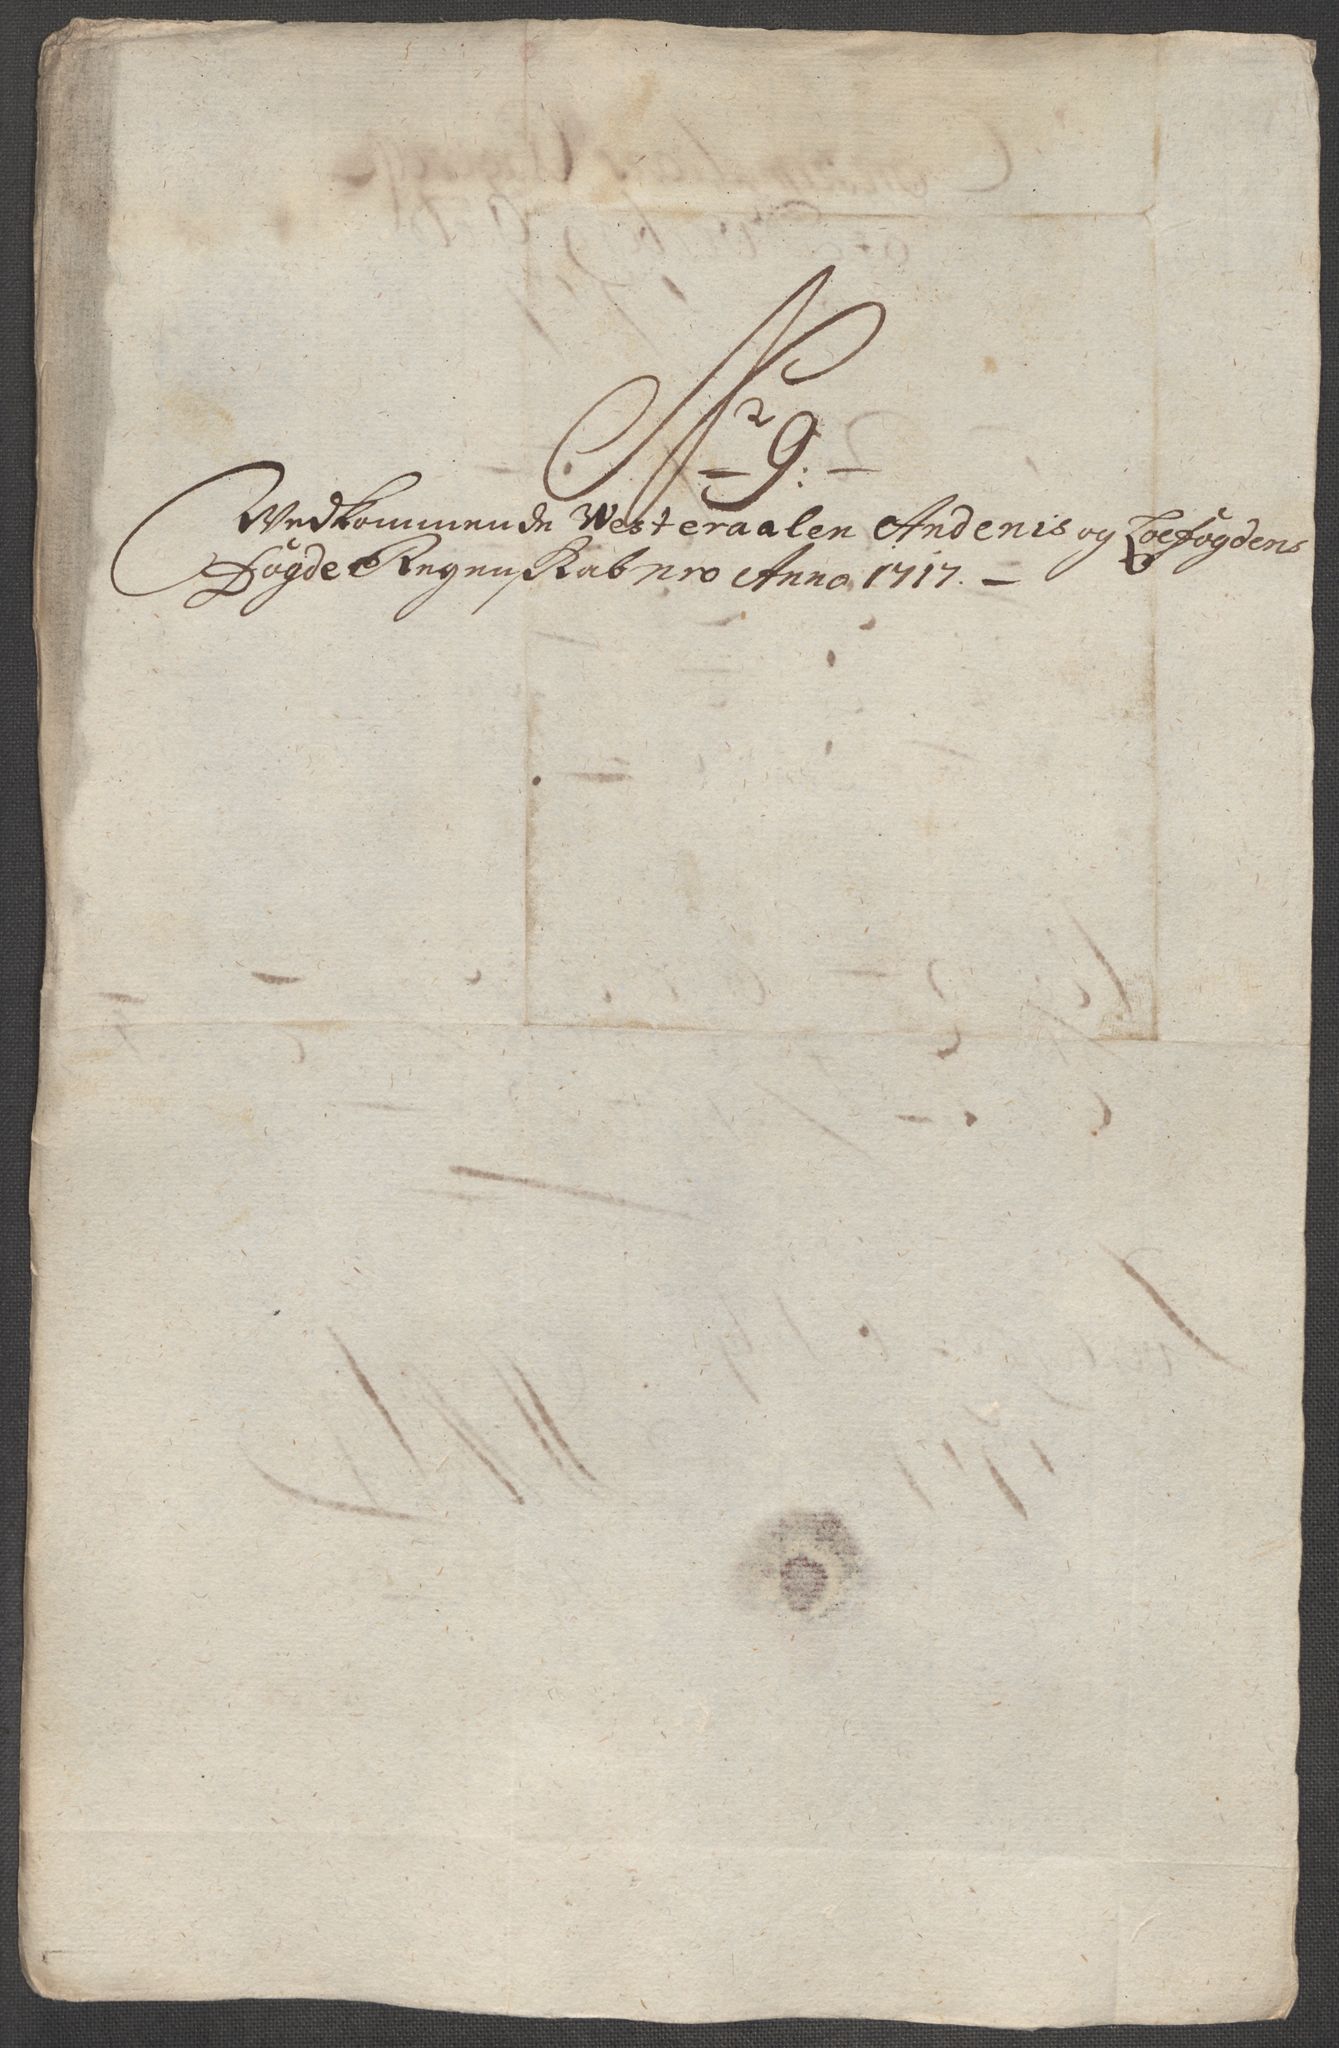 No 9:
Vedkommende Westeraalen Andenis og Loefogdens
Fogde Regenskab pro Anno 1717. –